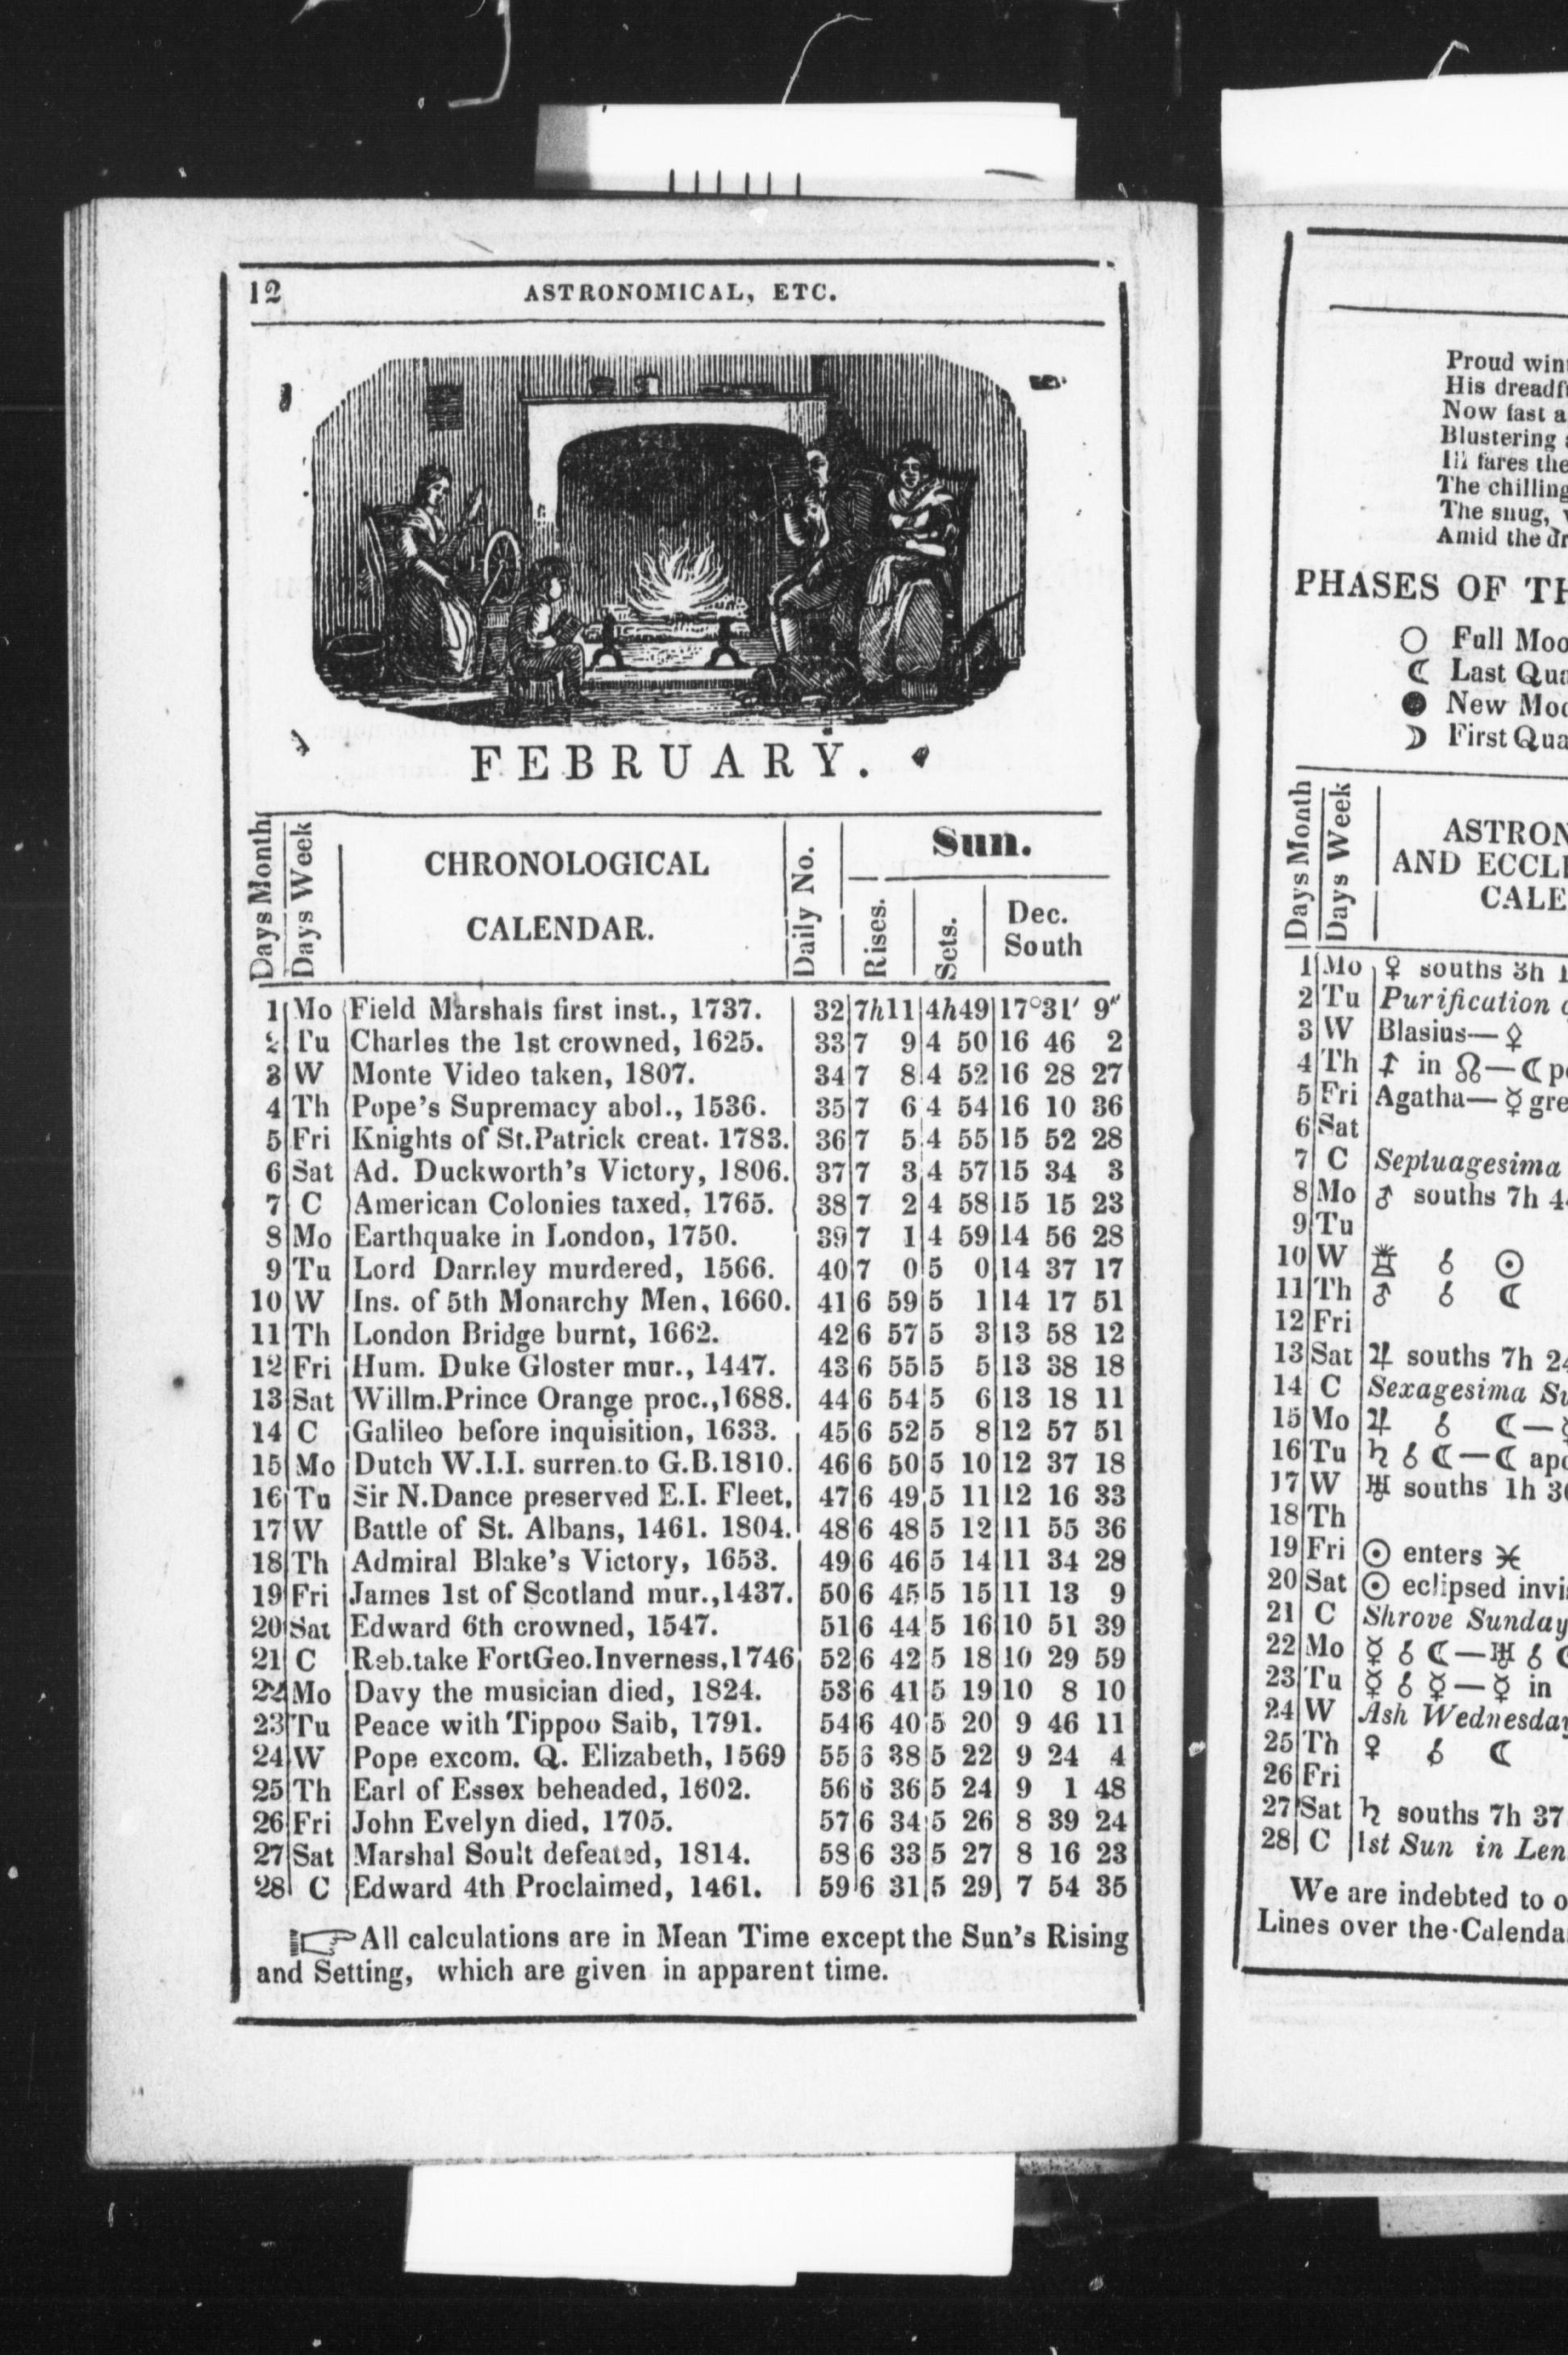 12
ASTRONOMICAL, ETC.
FEBRUARY.
Days Month
Days Week
CHRONOLOGICAL
CALENDAR.
Daily No.
Sun.
Rises.
Sets.
Dec.
South
1 Mo Field Marshals first inst., 1737. 32 7h11 4h49 17°31′ 9″
2 Tu Charles the 1st crowned, 1625. 33 7 9 4 50 16 46 2
3 W Monte Video taken, 1807. 34 7 8 4 52 16 28 27
4 Th Pope's Supremacy abol., 1536. 35 7 6 4 54 16 10 36
5 Fri Knights of St.Patrick creat. 1783. 36 7 5 4 55 15 52 28
6 Sat Ad. Duckworth's Victory, 1806. 37 7 3 4 57 15 34 3
7 C American Colonies taxed, 1765. 38 7 2 4 58 15 15 23
8 Mo Earthquake in London, 1750. 39 7 1 4 59 14 56 28
9 Tu Lord Darnley murdered, 1566. 40 7 0 5 0 14 37 17
10 W Ins. of 5th Monarchy Men, 1660. 41 6 59 5 1 14 17 51
11 Th London Bridge burnt, 1662. 42 6 57 5 3 13 58 12
12 Fri Hum. Duke Gloster mur., 1447. 43 6 55 5 5 13 38 18
13 Sat Willm.Prince Orange proc.,1688. 44 6 54 5 6 13 18 11
14 C Galileo before inquisition, 1633. 45 6 52 5 8 12 57 51
15 Mo Dutch W.I.I. surren.to G.B.1810. 46 6 50 5 10 12 37 18
16 Tu Sir N.Dance preserved E.I. Fleet, 47 6 49 5 11 12 16 33
17 W Battle of St. Albans, 1461. 1804. 48 6 48 5 12 11 55 36
18 Th Admiral Blake's Victory, 1653. 49 6 46 5 14 11 34 28
19 Fri James 1st of Scotland mur.,1437. 50 6 45 5 15 11 13 9
20 Sat Edward 6th crowned, 1547. 51 6 44 5 16 10 51 39
21 C Reb.take FortGeo.Inverness,1746 52 6 42 5 18 10 29 59
22 Mo Davy the musician died, 1824. 53 6 41 5 19 10 8 10
23 Tu Peace with Tippoo Saib, 1791. 54 6 40 5 20 9 46 11
24 W Pope excom. Q. Elizabeth, 1569 55 6 38 5 22 9 24 4
25 Th Earl of Essex beheaded, 1602. 56 6 36 5 24 9 1 48
26 Fri John Evelyn died, 1705. 57 6 34 5 26 8 39 24
27 Sat Marshal Soult defeated, 1814. 58 6 33 5 27 8 16 23
28 C Edward 4th Proclaimed, 1461. 59 6 31 5 29 7 54 35
☞All calculations are in Mean Time except the Sun's Rising
and Setting, which are given in apparent time.
Proud
His
Now fast
Blustering
Ill fares the
The chilling
The snug,
Amid the
PHASES OF
○ Full
☾ Last
● New
☽ First
Days Month
Days Week
AND
1 Mo ♀ souths 3h
2 Tu Purification
3 W Blasius—
4 Th in ☊—☾
5 Fri Agatha—☿
6 Sat
7 C Septuagesima
8 Mo ♂ souths 7h
9 Tu
10 W ☍ ☉
11 Th ♂ ☍ ☾
12 Fri
13 Sat ♃ souths 7h
14 C Sexagesima
15 Mo ♃ ☍ ☾—
16 Tu ♄ ☍ ☾—☾
17 W ♅ souths 1h
18 Th
19 Fri ☉ enters ♓
20 Sat ☉ eclipsed
21 C Shrove Sunday
22 Mo ☿ ☍ ☾—♅ ☍
23 Tu ☿ ☍ ☿—☿ in
24 W Ash Wednesday
25 Th ♀ ☍ ☾
26 Fri
27 Sat ♄ souths 7h 37
28 C 1st Sun in
We are indebted to
Lines over the